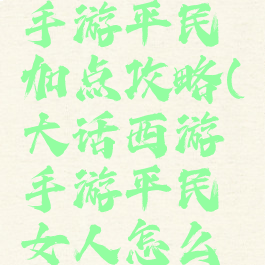 手游平民
加点攻略(
大话西游
手游平民
女人怎么